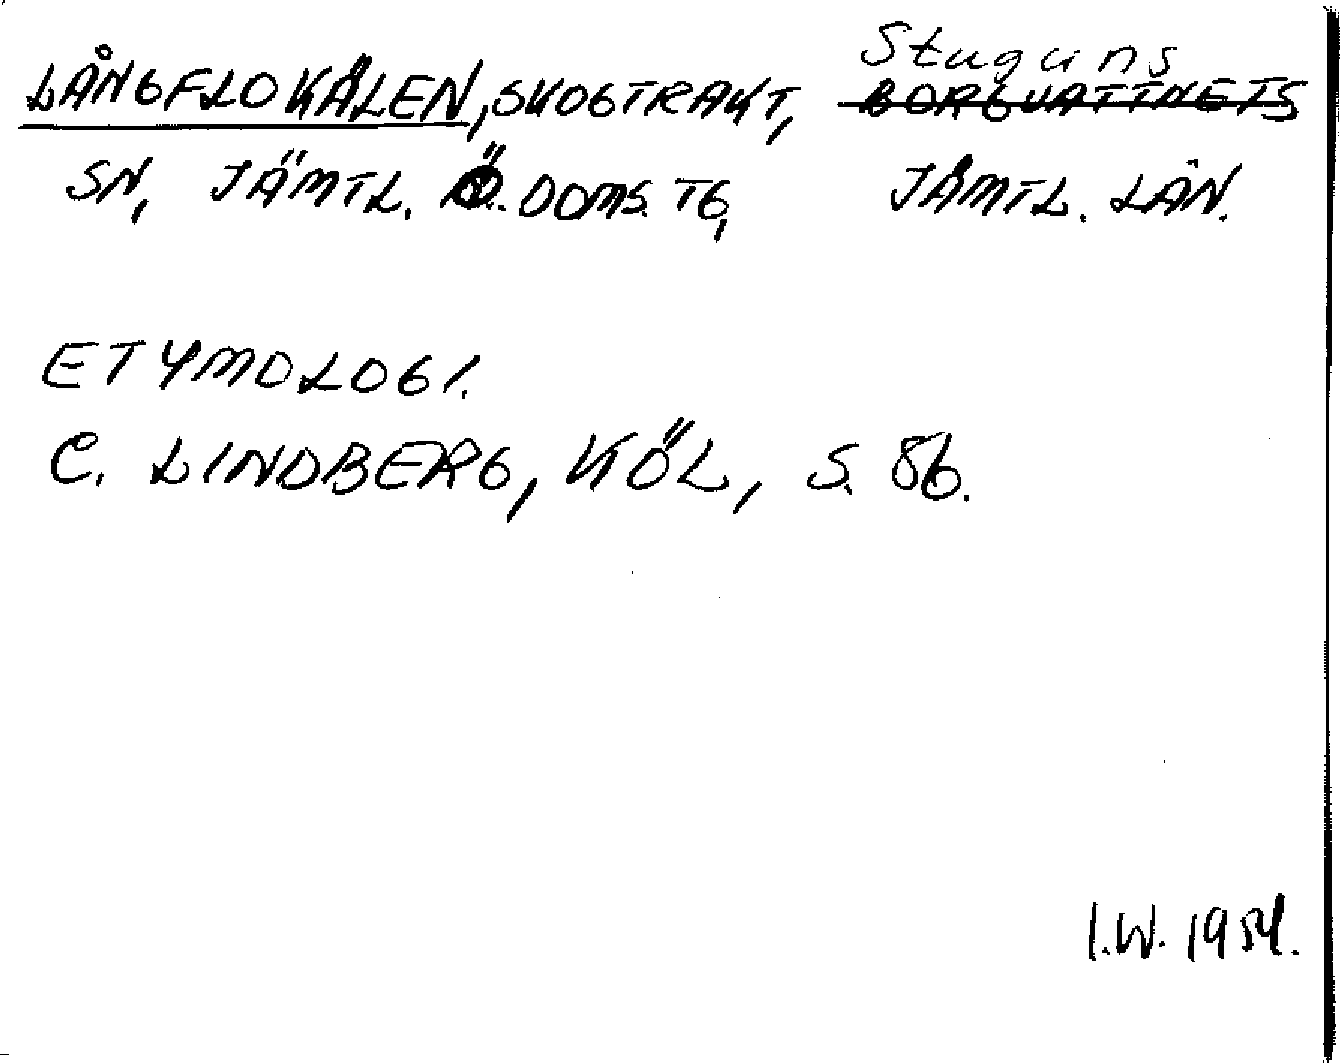 Staguns
LÅNGFLOKÅLEN, SKOGTRAKT, BORGVATTNETS
SN, JÄMTL. Ö. DOMS. TG, JÄMTL. LÄN.
ETYMOLOGI.
C. LINDBERG, KÖL, S. 86.
I.W. 1954.